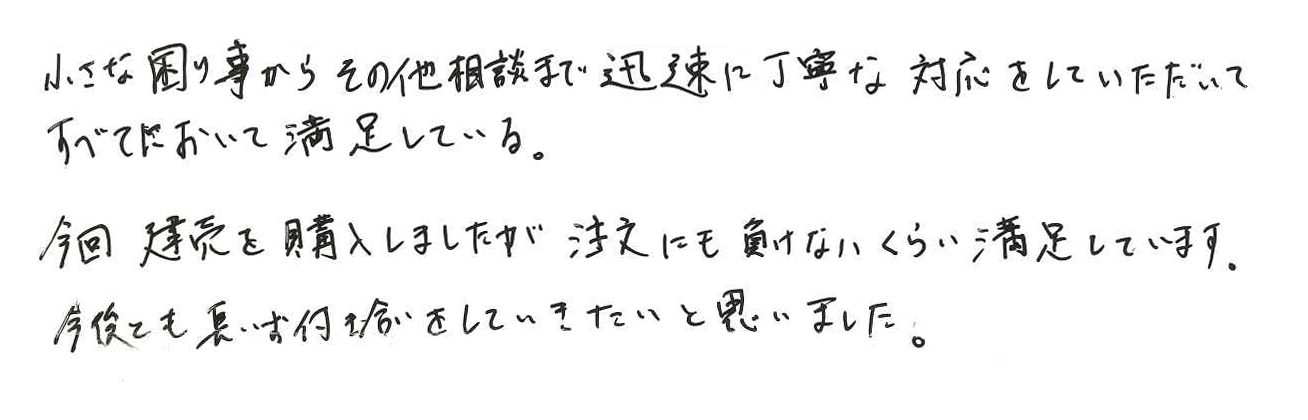 小さな困り事からその他相談まで迅速に丁寧な対応をしていただいて
すべてにおいて満足している。
今回建売を購入しましたが注文にも負けないくらい満足しています。
今後とも長いお付き合いをしていきたいと思いました。